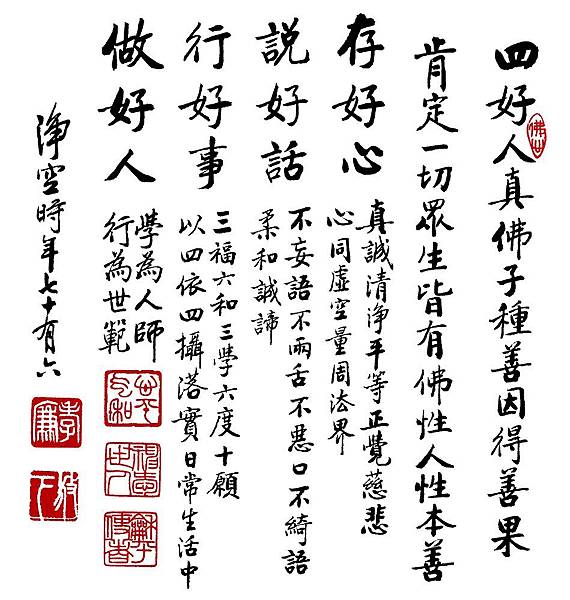 四好人真佛子種善因得善果
肯定一切眾生皆有佛性人性本善
存好心
真誠清淨平等正覺慈悲
心同虛空量周法界
說好話
不妄語不兩舌不惡口不綺語
柔和誠諦
行好事
三福六和三學六度十願
以四依四攝落實日常生活中
做好人
學為人師
行為世範
淨空時年七十有六